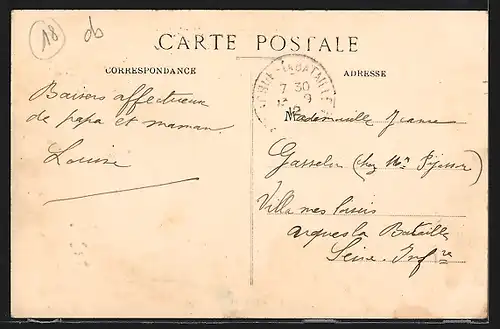 18 db
CARTE POSTALE
CORRESPONDANCE
ADRESSE
LA BATAILLE
7 30
9
Baisers affectueux
de papa et maman
Louise
Mademoiselle Jeanne
Gasselin (chez Mr
Villa mes loisirs
arques la Bataille
Seine Infre